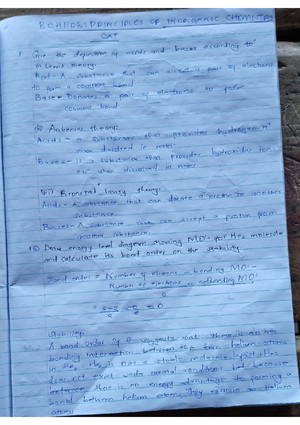 BCAH103: PRINCIPLES OF INORGANIC CHEMISTRY
CAT
1. Give the definition of acids and bases according to
i) Lewis theory:
Acid - A substance that can accept a pair of electrons
to form a covalent bond
Base - Donates a pair of electrons to form
covalent bond.
ii) Arrhenius theory:
Acids - a substance that provides hydrogen
when dissolved in water.
Bases - is a substance that provides hydroxide ions
when dissolved in water.
iii) Bronsted Lowry theory:
Acids - A substance that can donate a proton to another
substance.
Bases - A substance which can accept a proton from
another substance.
Draw energy level diagram showing MO's for He2 molecule
and calculate its bond order on the stability.
Bond order = Number of electrons in bonding MO's -
Number of electrons in antibonding MO's
2
= 2-2 = 0
2
Stability:
A bond order of 0 suggests that there is no net
bonding interaction between the helium atoms
in He2. He2 is not a stable molecule
does not exist under normal conditions
there is no energy advantage to forming a
bond between helium atoms. They remain as helium
atoms